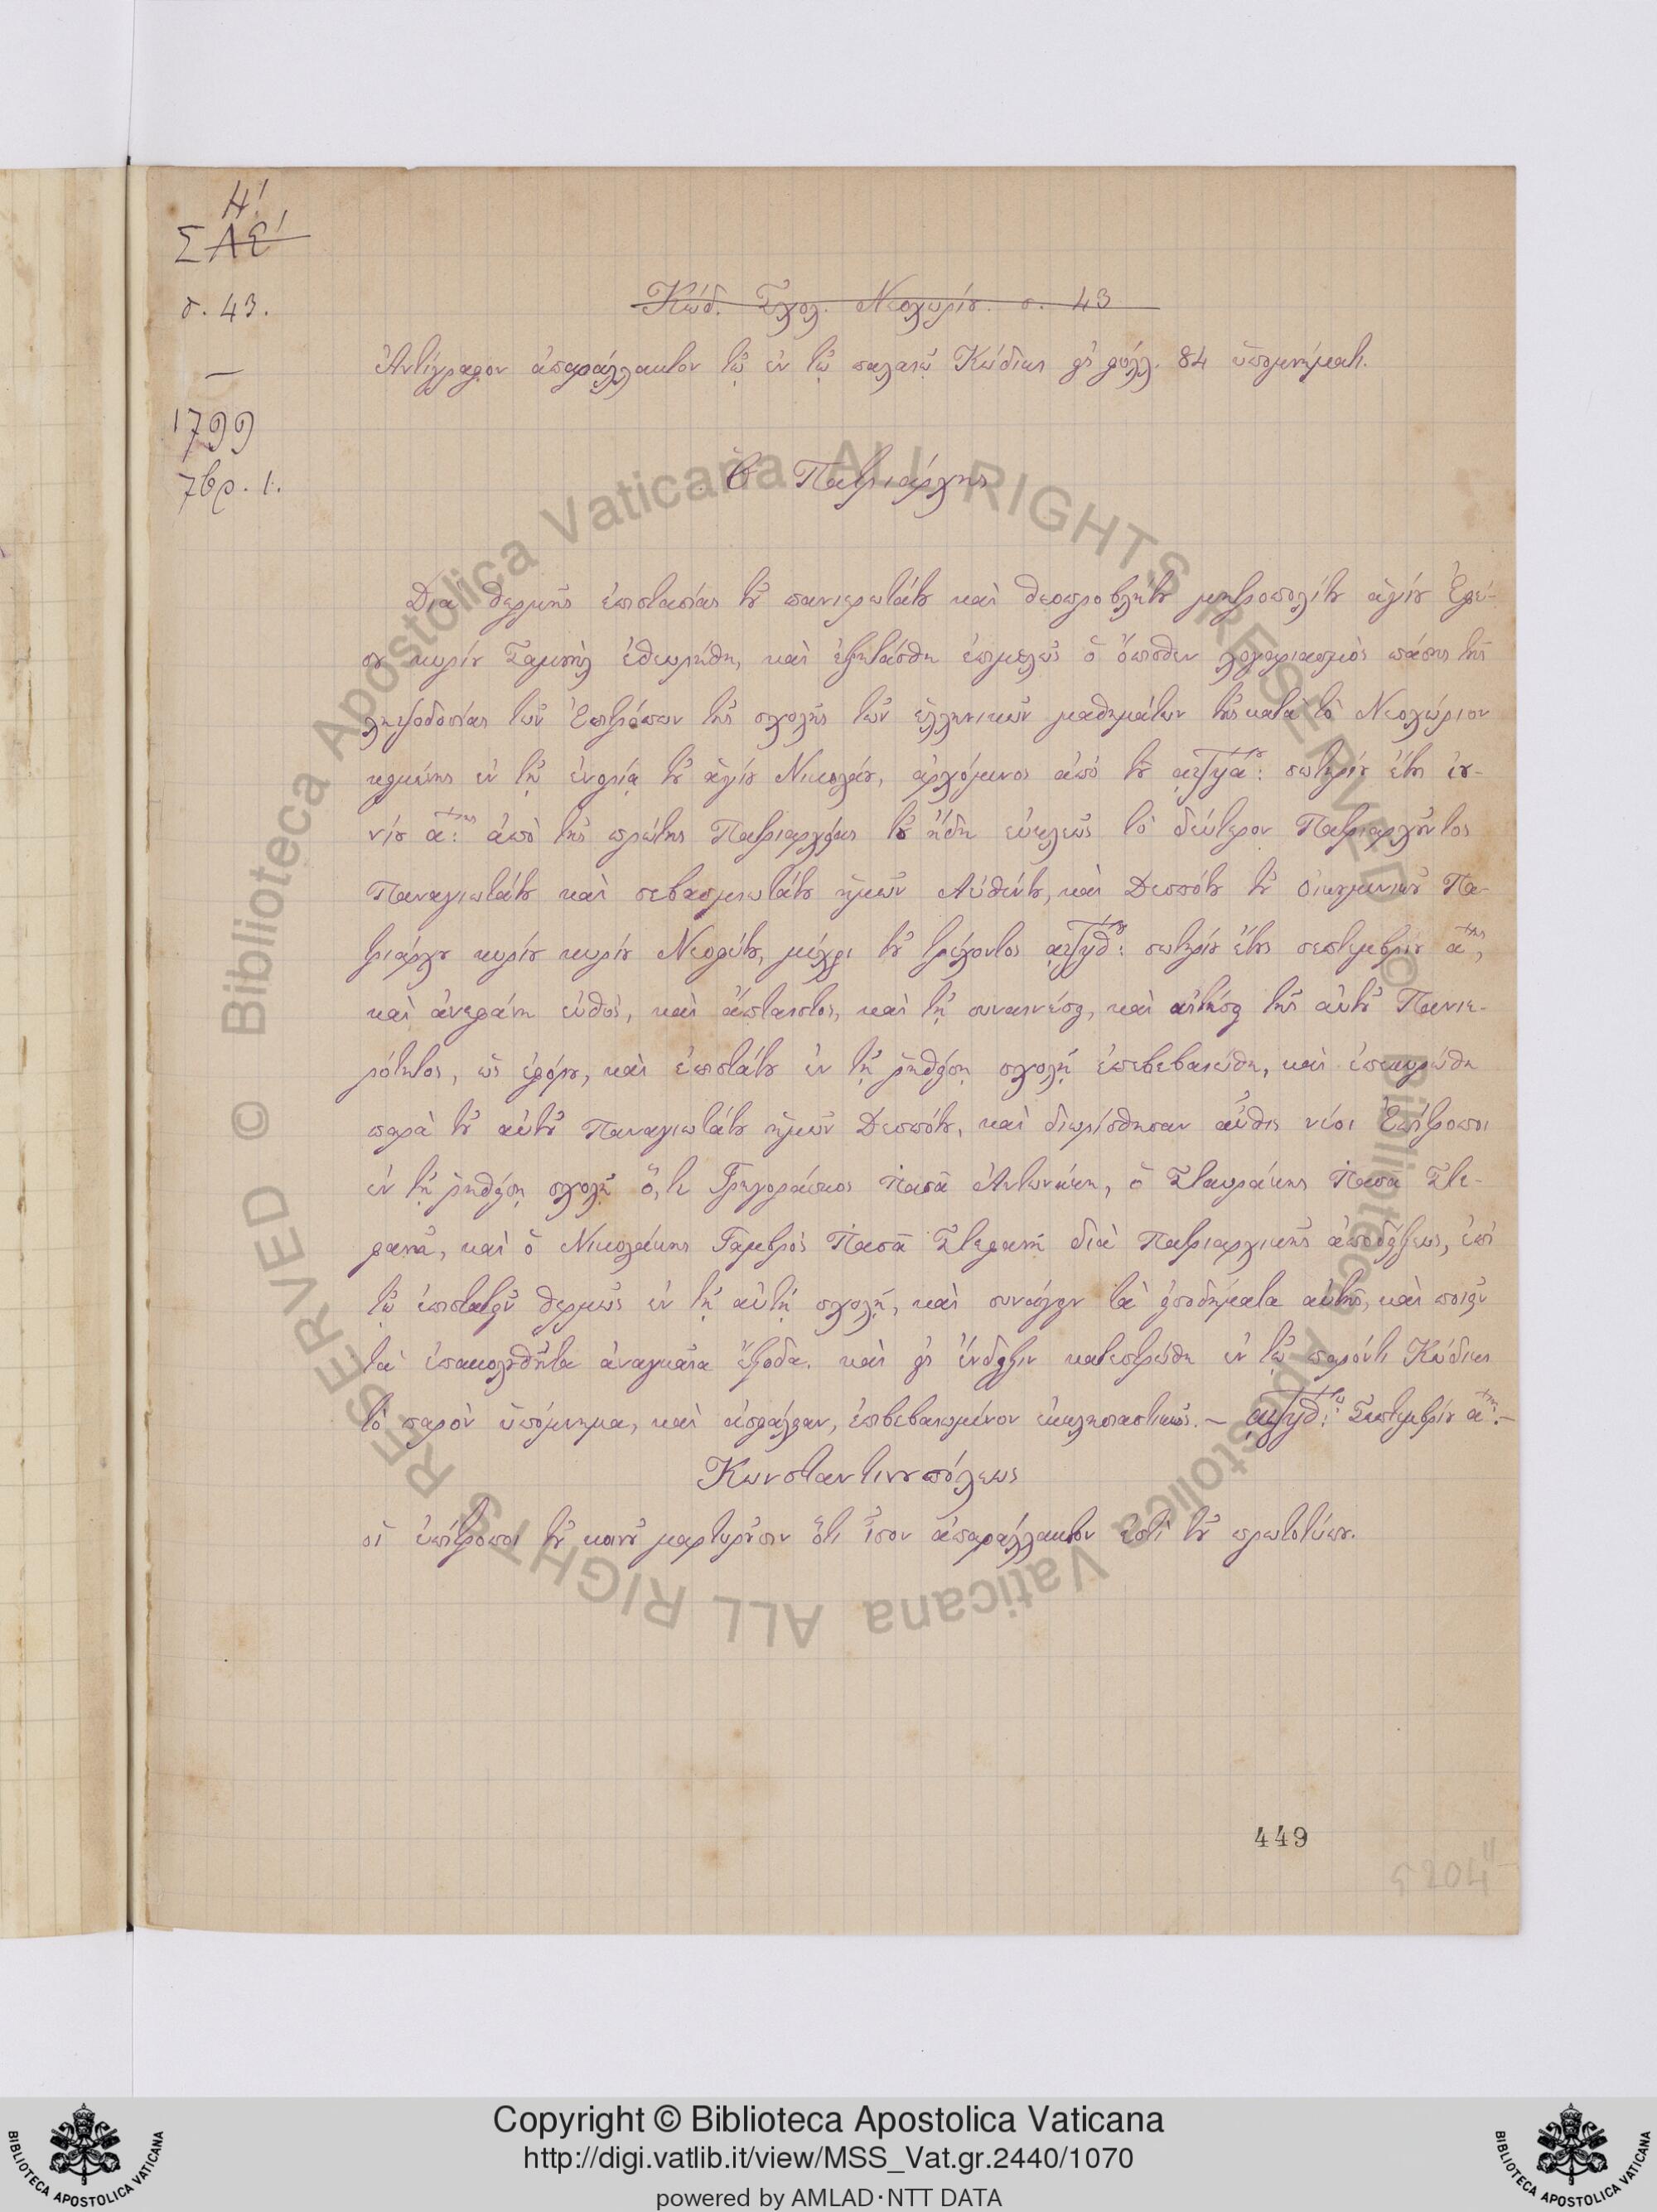 Η!
ΣΛΕ'
σ. 43.
Κώδ. Σχολ. Νεοχωρίου. σ. 43
Ἀντίγραφον ἀπαράλλακτον τῷ ἐν τῷ παλαιῷ Κώδικι εἰς φύλλ. 84 ὑπομνήματι.
1799
7βρ. 1.
Ὁ Πατριάρχης
Διὰ θερμῆς ἐπιστασίας τοῦ πανιερωτάτου καὶ θεοπροβλήτου μητροπολίτου ἁγίου Ἐφέ-
σου κυρίου Σαμουὴλ ἐθεωρήθη, καὶ ἐξητάσθη ἐπιμελῶς ὁ ὄπισθεν λογαριασμὸς πάσης τῆς
ληψοδοσίας τῶν Ἐπιτρόπων τῆς σχολῆς τῶν ἑλληνικῶν μαθημάτων τῆς κατὰ τὸ Νεοχώριον
κειμένης ἐν τῇ ἐνορίᾳ τοῦ ἁγίου Νικολάου, ἀρχόμενος ἀπὸ τοῦ σωτηρίου ἔτους ἰου-
νίου α:ης ἀπὸ τῆς πρώτης Πατριαρχείας τοῦ ἤδη εὐκλεῶς τὸ δεύτερον Πατριαρχοῦντος
Παναγιωτάτου καὶ σεβασμιωτάτου ἡμῶν Αὐθέντου, καὶ Δεσπότου τοῦ Οἰκουμενικοῦ Πα-
τριάρχου κυρίου κυρίου Νεοφύτου, μέχρι τοῦ τρέχοντος αψϟθ:ου σωτηρίου ἔτους σεπτεμβρίου α:ης,
καὶ ἀνεφάνη εὐθὺς, καὶ ἄπταιστος, καὶ τῇ συναινέσει, καὶ αἰτήσει τῆς αὐτοῦ Πανιε-
ρότητος, ὡς ἐφόρου, καὶ ἐπιστάτου ἐν τῇ ῥηθείσῃ σχολῇ ἐπεβεβαιώθη, καὶ ἐπεκυρώθη
παρὰ τοῦ αὐτοῦ Παναγιωτάτου ἡμῶν Δεσπότου, καὶ διωρίσθησαν αὖθις νέοι Ἐπίτροποι
ἐν τῇ ῥηθείσῃ σχολῇ ὅ,τε Γρηγοράσκος Παπᾶ Ἀντωνάκη, ὁ Σταυράκης Παπᾶ Στε-
φανῆ, καὶ ὁ Νικολάκης Γαμβρὸς Παπᾶ Στεφανῆ διὰ Πατριαρχικῆς ἀποδείξεως, ἐπὶ
τῷ ἐπιστατεῖν θερμῶς ἐν τῇ αὐτῇ σχολῇ, καὶ συνάγειν τὰ εἰσοδήματα αὐτῆς, καὶ ποιεῖν
τὰ ἐπακολουθοῦντα ἀναγκαῖα ἔξοδα. καὶ εἰς ἔνδειξιν κατεστρώθη ἐν τῷ παρόντι Κώδικι
τὸ παρὸν ὑπόμνημα, καὶ ἀσφάλειαν, ἐπιβεβαιωμένον ἐκκλησιαστικῶς. – αψϟθ:ῳ Σεπτεμβρίου α:ῃ –
Κωνσταντινουπόλεως
οἱ ἐπίτροποι τοῦ κοινοῦ μαρτυροῦσιν ὅτι ἶσον ἀπαράλλακτον ἐστὶ τοῦ πρωτοτύπου.
449
Biblioteca Apostolica Vaticana ALL RIGHTS RESERVED ©
Biblioteca Apostolica Vaticana ALL RIGHTS RESERVED ©
Copyright © Biblioteca Apostolica Vaticana
http://digi.vatlib.it/view/MSS_Vat.gr.2440/1070
powered by AMLAD·NTT DATA
BIBLIOTECA APOSTOLICA VATICANA
BIBLIOTECA APOSTOLICA VATICANA